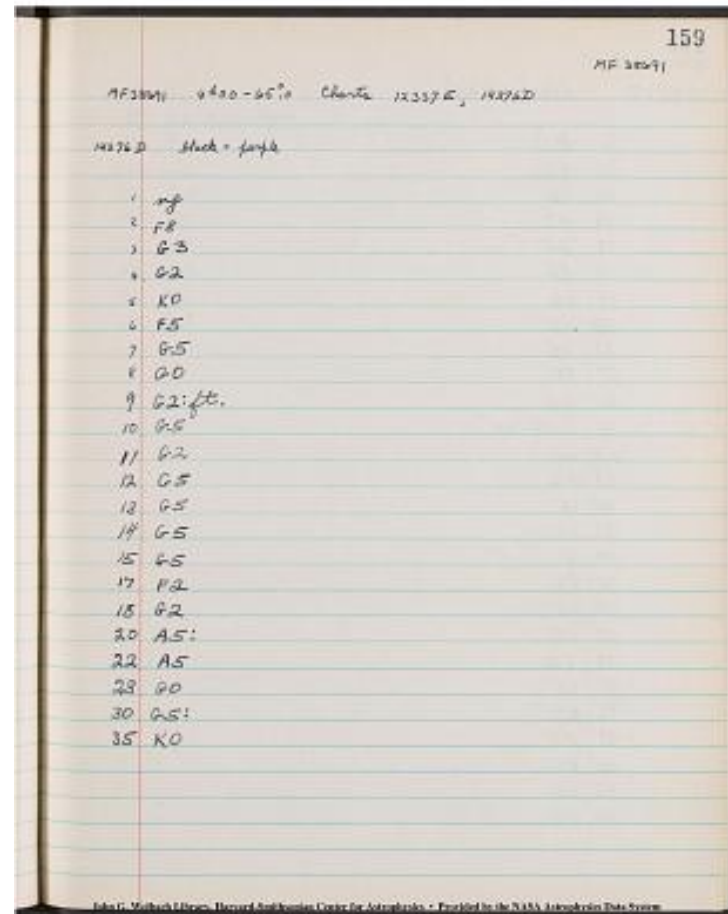 159
MF 38691
MF 38691 Charts 12337E, 14376D
14376 D black = purple
1 mf
2 F8
3 G3
4 G2
5 K0
6 F5
7 G5
8 G0
9 G2: ft.
10 G5
11 G2
12 G5
13 G5
14 G5
15 G5
17 F2
18 G2
20 A5:
22 A5
23 G0
30 G5:
35 K0
John G. Wolbach Library, Harvard-Smithsonian Center for Astrophysics • Provided by the NASA Astrophysics Data System